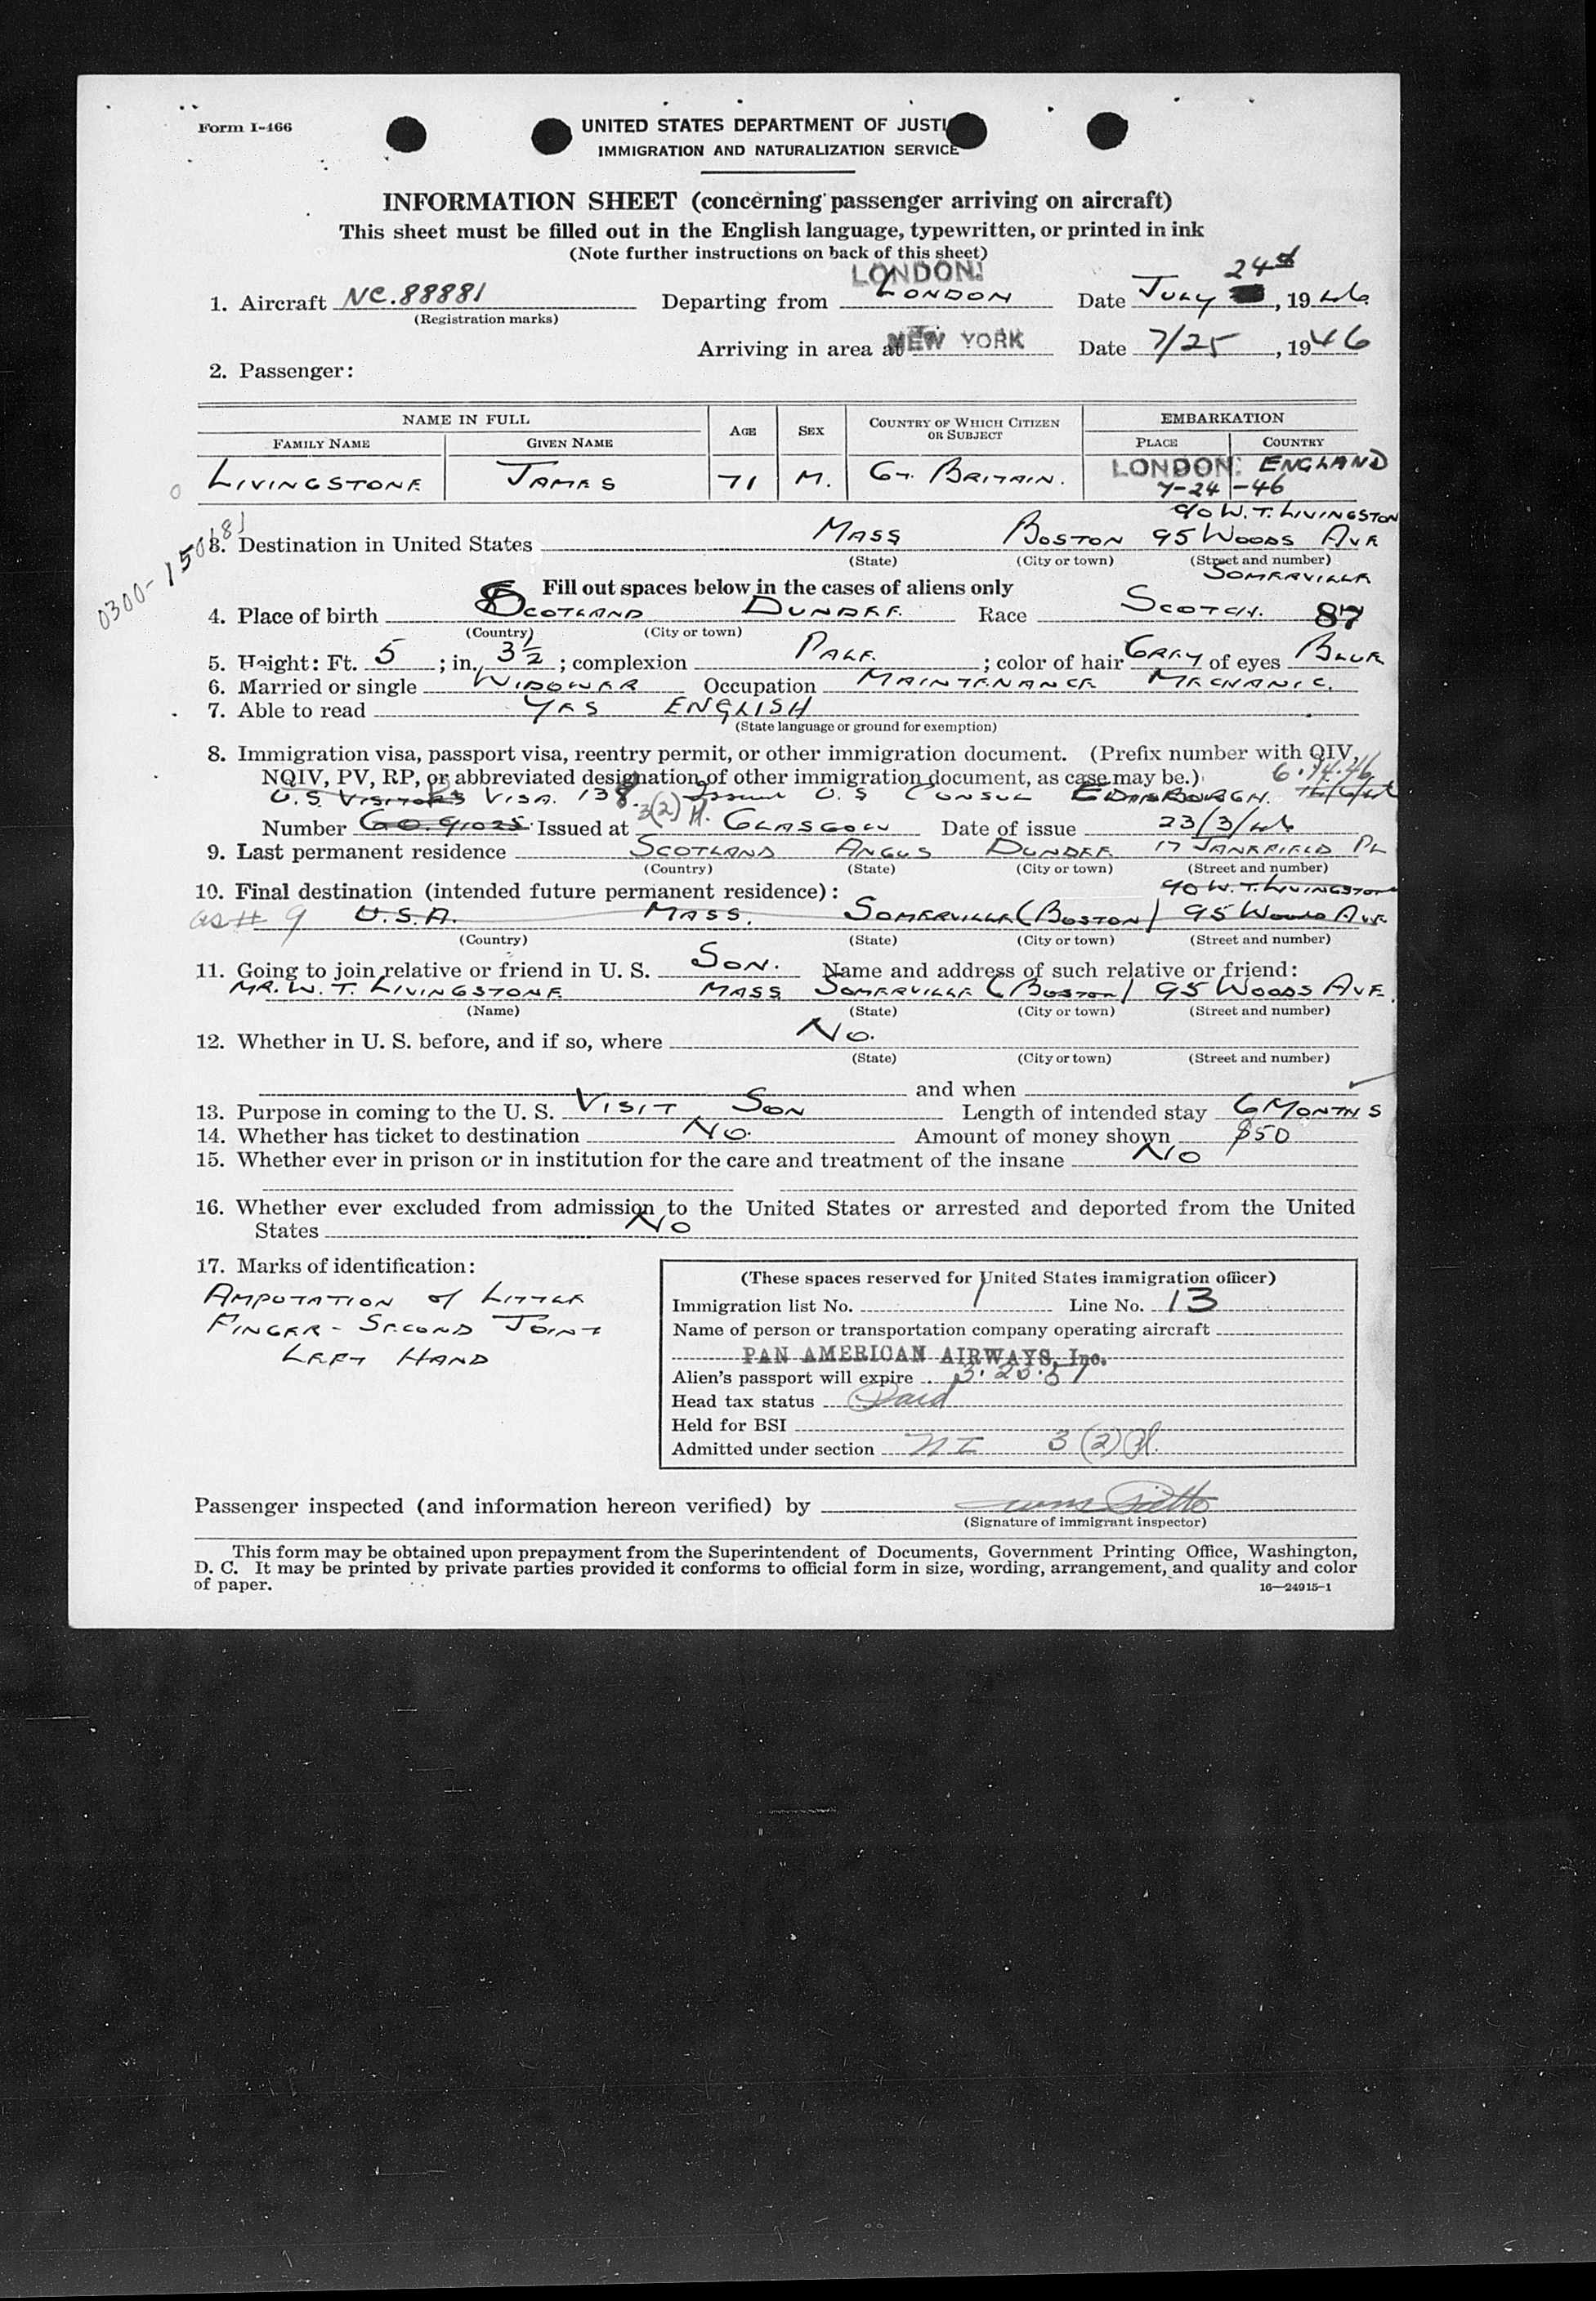 Form I-466
UNITED STATES DEPARTMENT OF JUSTI
IMMIGRATION AND NATURALIZATION SERVICE
INFORMATION SHEET (concerning passenger arriving on aircraft)
This sheet must be filled out in the English language, typewritten, or printed in ink
(Note further instructions on back of this sheet)
LONDON. 24th
1. Aircraft NC.88881 Departing from LONDON Date JULY , 1946
(Registration marks)
Arriving in area at NEW YORK Date 7/25, 1946
2. Passenger:
NAME IN FULL AGE SEX COUNTRY OF WHICH CITIZEN OR SUBJECT EMBARKATION
FAMILY NAME GIVEN NAME PLACE COUNTRY
LIVINGSTONE JAMES 71 M. GT. BRITAIN. LONDON. ENGLAND
7-24-46
0300-150181
c/o W. T. LIVINGSTON
3. Destination in United States MASS BOSTON 95 WOODS AVE
(State) (City or town) (Street and number)
SOMERVILLE
Fill out spaces below in the cases of aliens only
4. Place of birth SCOTLAND DUNDEE. Race SCOTCH. 87
(Country) (City or town)
5. Height: Ft. 5; in. 3½; complexion PALE.; color of hair GREY of eyes BLUE
6. Married or single WIDOWER Occupation MAINTENANCE MECHANIC.
7. Able to read YES ENGLISH
(State language or ground for exemption)
8. Immigration visa, passport visa, reentry permit, or other immigration document. (Prefix number with QIV,
NQIV, PV, RP, or abbreviated designation of other immigration document, as case may be.) 6.14.46
U.S. VISITORS VISA. 138. Issued U.S CONSUL EDINBURGH.
3(2) A.
Number GO.91025. Issued at GLASGOW Date of issue 23/3/46
9. Last permanent residence SCOTLAND ANGUS DUNDEE 17 JANEFIELD PL
(Country) (State) (City or town) (Street and number)
10. Final destination (intended future permanent residence): c/o W. T. LIVINGSTONE
as # 9 U.S.A. MASS. SOMERVILLE (BOSTON) 95 WOODS AVE
(Country) (State) (City or town) (Street and number)
11. Going to join relative or friend in U. S. SON. Name and address of such relative or friend:
MR. W. T. LIVINGSTONE MASS SOMERVILLE (BOSTON) 95 WOODS AVE.
(Name) (State) (City or town) (Street and number)
12. Whether in U. S. before, and if so, where NO.
(State) (City or town) (Street and number)
and when
13. Purpose in coming to the U. S. VISIT SON Length of intended stay 6 MONTHS
14. Whether has ticket to destination NO. Amount of money shown $50
15. Whether ever in prison or in institution for the care and treatment of the insane NO
16. Whether ever excluded from admission to the United States or arrested and deported from the United
States NO
17. Marks of identification:
AMPUTATION of LITTLE
FINGER - SECOND JOINT
LEFT HAND
(These spaces reserved for United States immigration officer)
Immigration list No. 1 Line No. 13
Name of person or transportation company operating aircraft
PAN AMERICAN AIRWAYS, Inc.
Alien's passport will expire 3.23.51
Head tax status Paid
Held for BSI
Admitted under section NI 3(2) A.
Passenger inspected (and information hereon verified) by
(Signature of immigrant inspector)
This form may be obtained upon prepayment from the Superintendent of Documents, Government Printing Office, Washington,
D. C. It may be printed by private parties provided it conforms to official form in size, wording, arrangement, and quality and color
of paper.
16—24915-1